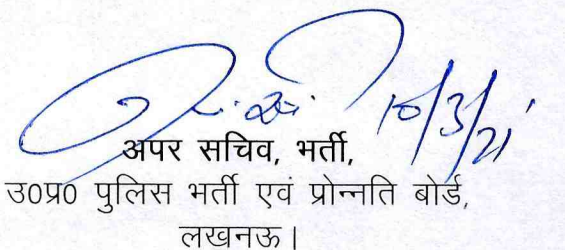 10/3/21
अपर सचिव, भर्ती,
उ0प्र0 पुलिस भर्ती एवं प्रोन्नति बोर्ड,
लखनऊ।